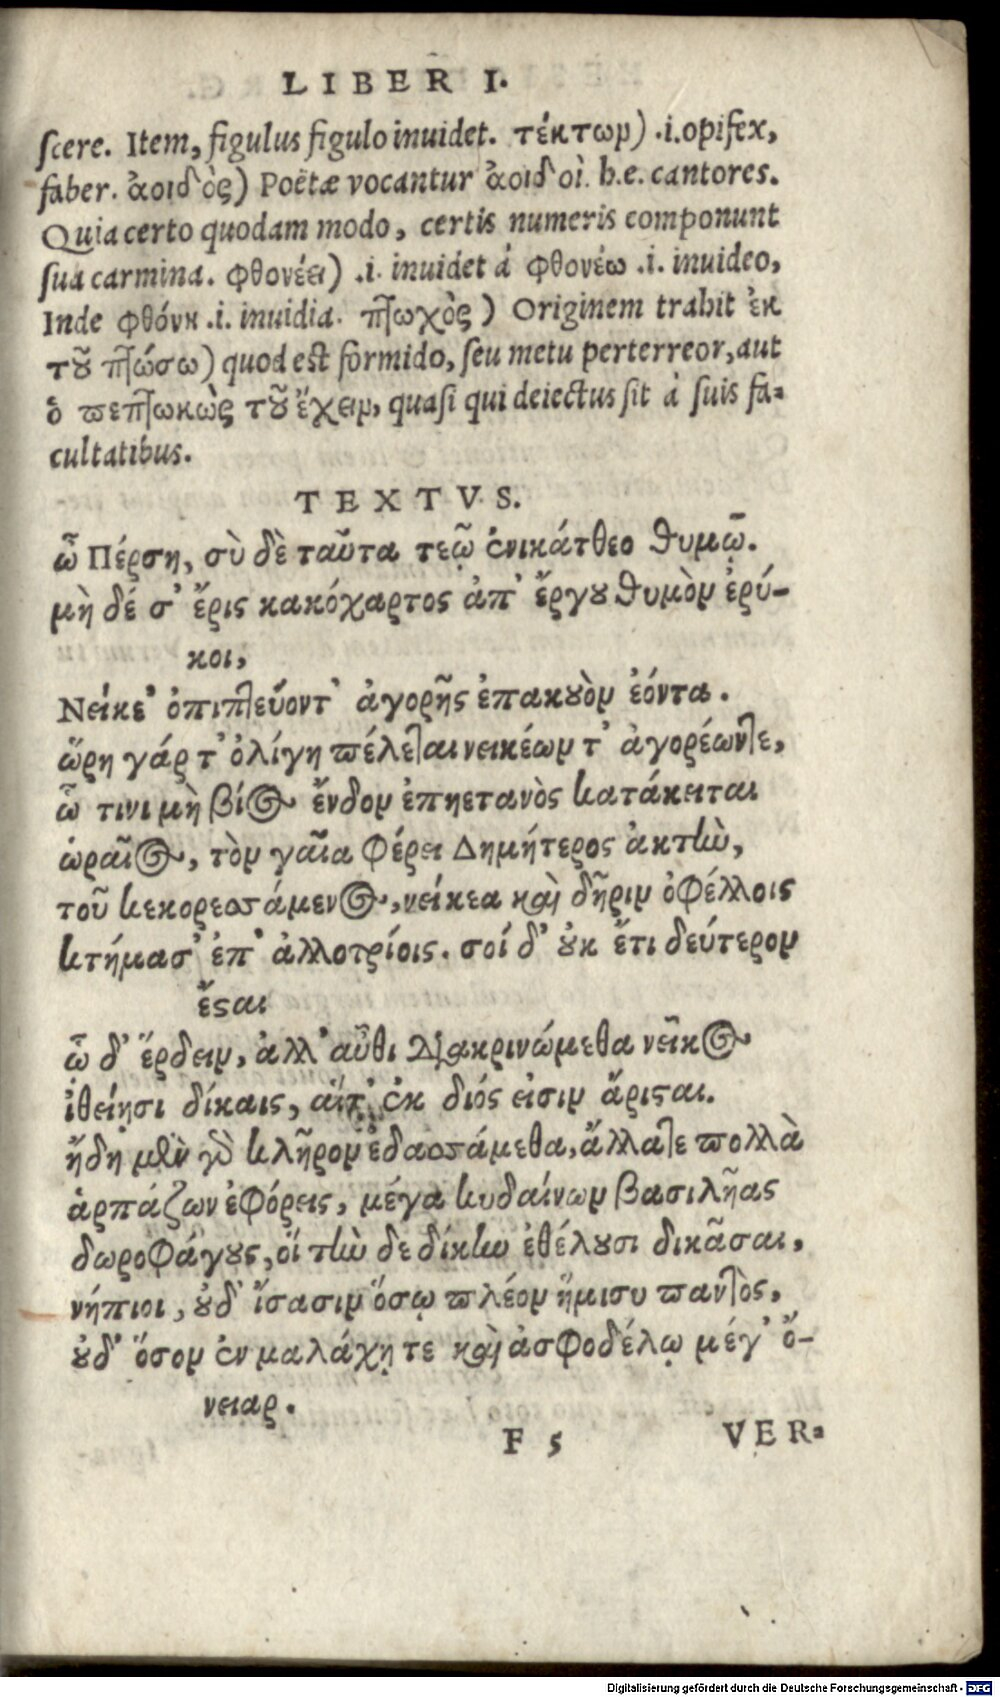 LIBER I.
scere. Item, figulus figulo inuidet. τέκτων) .i. opifex,
faber. ἀοιδὸς) Poëtæ vocantur ἀοιδοὶ. h.e. cantores.
Quia certo quodam modo, certis numeris componunt
sua carmina. φθονέει) .i. inuidet á φθονέω .i. inuideo,
Inde φθόνη .i. inuidia. πτωχὸς) Originem trahit ἐκ
τοῦ πτώσω) quod est formido, seu metu perterreor, aut
ὁ πεπτωκὼς τοῦ ἔχειν, quasi qui deiectus sit á suis fa-
cultatibus.
TEXTVS.
ὦ Πέρση, σὺ δὲ ταῦτα τεῷ ἐνικάτθεο θυμῷ.
μὴ δέ σ' ἔρις κακόχαρτος ἀπ' ἔργου θυμὸν ἐρύ-
κοι,
Νείκε' ὀπιπτεύοντ' ἀγορῆς ἐπακουὸν ἐόντα.
ὥρη γάρ τ' ὀλίγη πέλεται νεικέων τ' ἀγορέων τε,
ᾧ τινι μὴ βίος ἔνδον ἐπηετανὸς κατάκειται
ὡραῖος, τὸν γαῖα φέρει Δημήτερος ἀκτὴν,
τοῦ κεκορεσσάμενος, νείκεα καὶ δῆριν ὀφέλλοις
κτήμασ' ἐπ' ἀλλοτρίοις. σοί δ' οὐκ ἔτι δεύτερον
ἔσαι
ὧ δ' ἕρδειν, ἀλλ' αὖθι διακρινώμεθα νεῖκος
ἰθείῃσι δίκαις, αἵτ' ἐκ διός εἰσιν ἄρισαι.
ἤδη μὲν γὰρ κλῆρον ἐδασσάμεθα, ἄλλα τε πολλὰ
ἁρπάζων ἐφόρεις, μέγα κυδαίνων βασιλῆας
δωροφάγους, οἵ τὴν δε δίκην ἐθέλουσι δικᾶσαι,
νήπιοι, οὐδ' ἴσασιν ὅσῳ πλέον ἥμισυ παντὸς,
οὐδ' ὅσον ἐν μαλάχῃ τε καὶ ἀσφοδέλῳ μέγ' ὄ-
νειαρ.
F 5 VER-
Digitalisierung gefördert durch die Deutsche Forschungsgemeinschaft - DFG